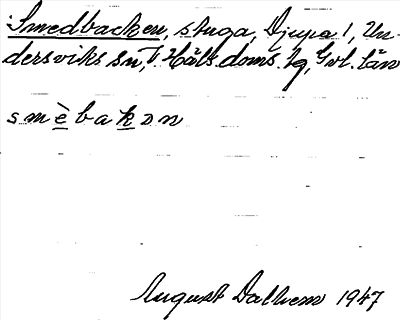 Smedbacken, stuga, Djupa 1, Un-
dersviks sn, Häls. doms. lg, Gvl. län
smèbakǝn
August Dalhem 1947